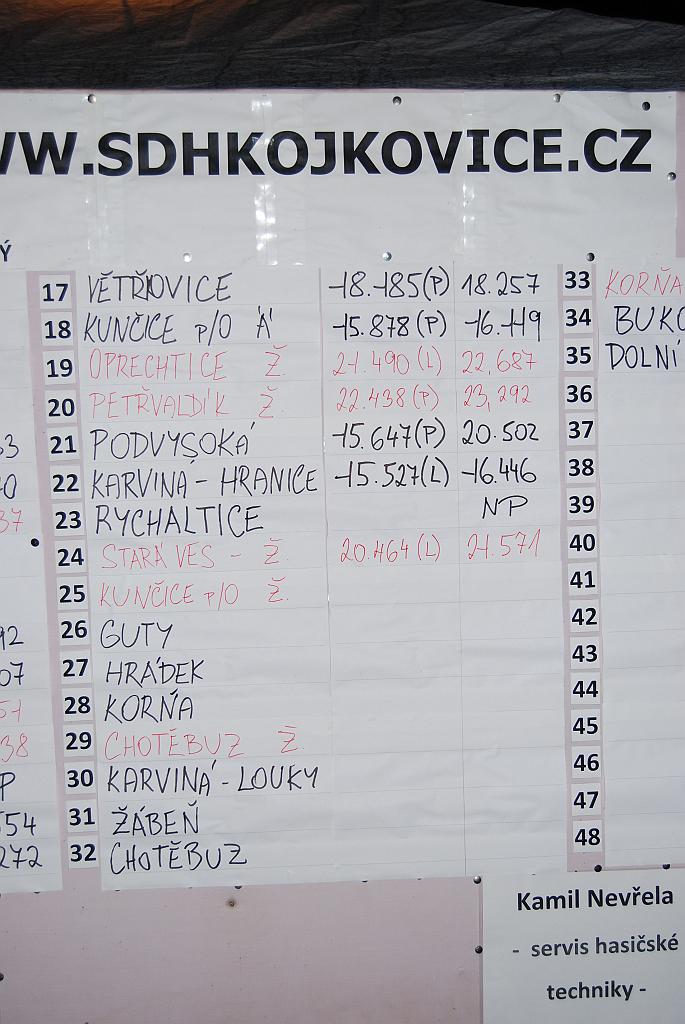 WW.SDHKOJKOVICE.CZ
Ý
17 VĚTŘKOVICE 18.185(P) 18.257 33 KORŇA
18 KUNČICE P/O 'A' 15.878 (P) 16.119 34 BUKO
19 OPRECHTICE Ž. 21.490 (L) 22,687 35 DOLNÍ
20 PETŘVALDÍK Ž. 22.438 (P) 23,292 36
33 21 PODVYSOKÁ 15.647(P) 20.502 37
0 22 KARVINÁ - HRANICE 15.527(L) 16.446 38
37 23 RYCHALTICE NP 39
24 STARÁ VES - Ž. 20.464 (L) 21.571 40
25 KUNČICE P/O Ž. 41
92 26 GUTY 42
07 27 HRÁDEK 43
51 28 KORŇA 44
38 29 CHOTĚBUZ Ž. 45
P 30 KARVINÁ - LOUKY 46
554 31 ŽÁBEŇ 47
272 32 CHOTĚBUZ 48
Kamil Nevřela
- servis hasičské
techniky -